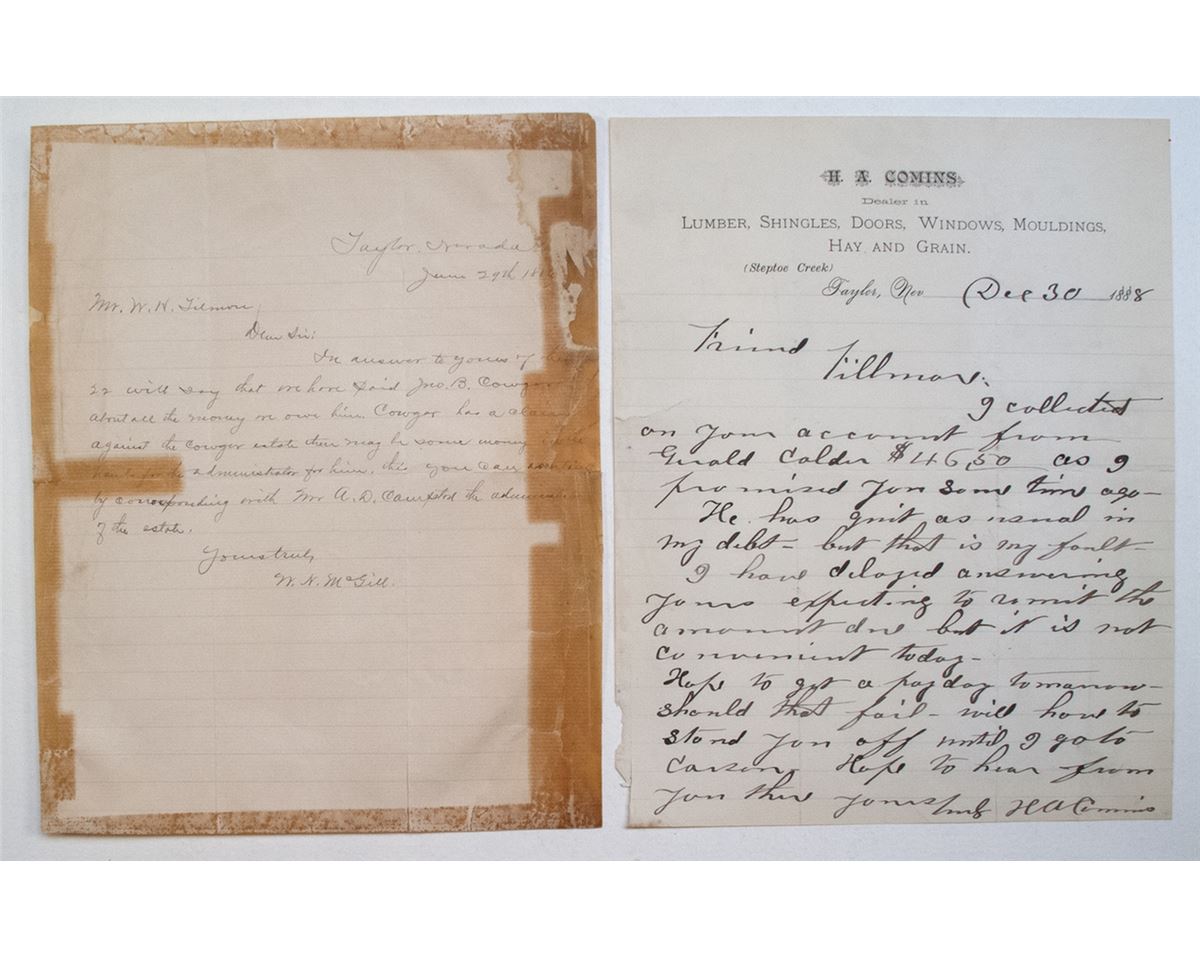 Taylor, Nevada
June 29th 188
Mr. W. H. Tilmon,
Dear Sir:
In answer to yours of
22 will say that we have paid Jno. B. Cowger
about all the money we owe him. Cowger has a claim
against the Cowger estate there may be some money
the administrator for him, this you can
by corresponding with Mr A. D. Campton the
of the estate.
Yours truly,
W. N. McGill.
H. A. COMINS
Dealer in
LUMBER, SHINGLES, DOORS, WINDOWS, MOULDINGS,
HAY AND GRAIN.
(Steptoe Creek)
Taylor, Nev Dec 30 1888
Friend
Tillman:
I collected
on your account from
Gerald Calder $46,50 as I
promised you some time ago—
He has quit as usual in
my debt— but that is my fault—
I have delayed answering
yours expecting to remit the
amount due but it is not
convenient today—
Hope to get a payday tomorrow—
should that fail— will have to
stand you off until I go to
Carson. Hope to hear from
you there yours truly H A Comins